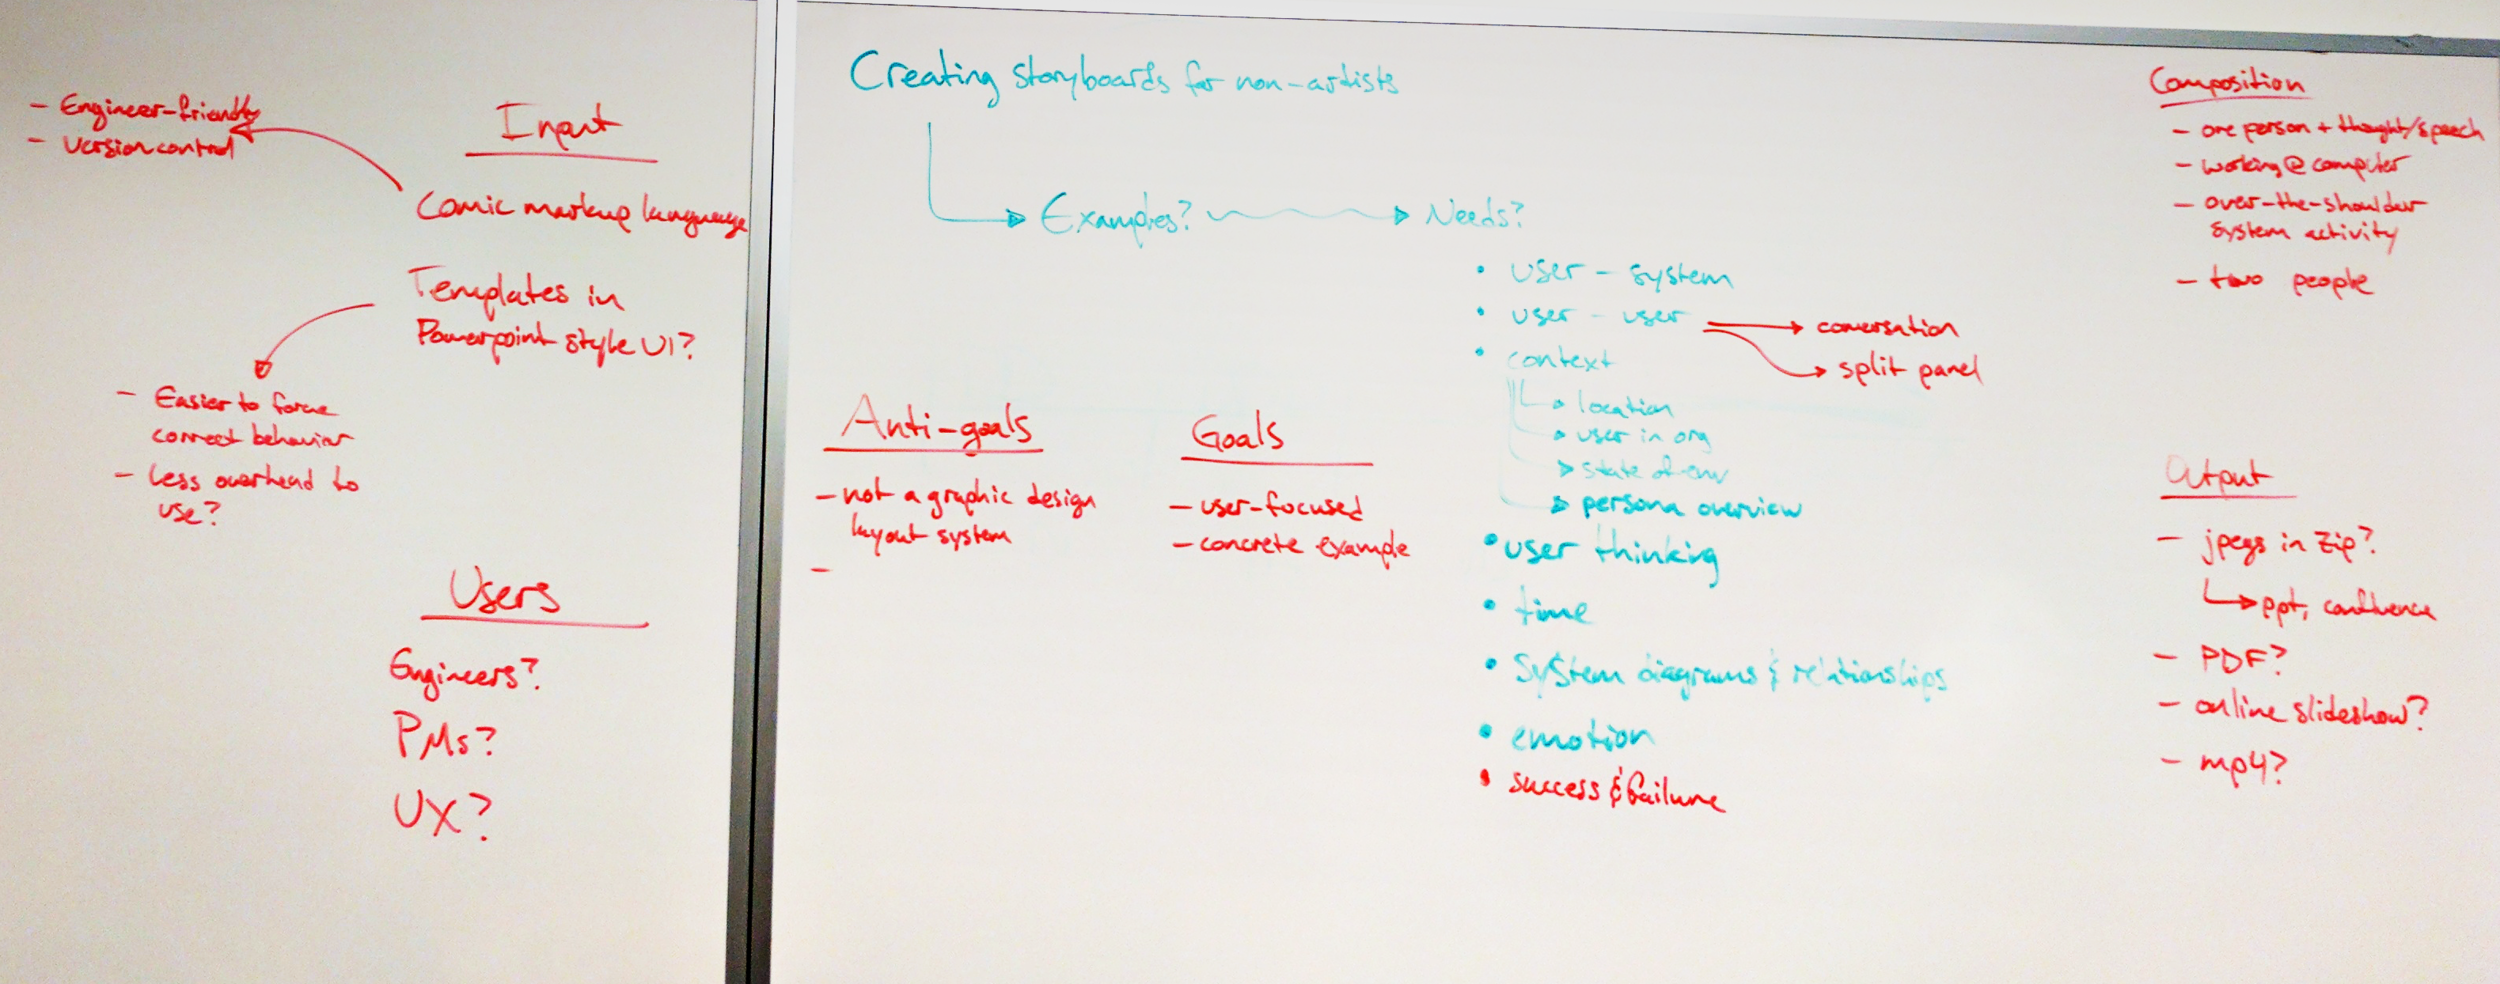 - Engineer-friendly
- Version control
Input
Comic markup language
Templates in
Powerpoint style UI?
- Easier to force
correct behavior
- Less overhead to
use?
Users
Engineers?
PMs?
UX?
Creating storyboards for non-artists
Examples?
Needs?
• user - system
• user - user
conversation
split panel
• context
location
user in org
state of env
persona overview
• user thinking
• time
• system diagrams & relationships
• emotion
• success & failure
Anti-goals
- not a graphic design
layout system
-
Goals
- user-focused
- concrete example
Composition
- one person + thought/speech
- working @ computer
- over-the-shoulder
system activity
- two people
Output
- jpegs in zip?
ppt, confluence
- PDF?
- online slideshow?
- mp4?